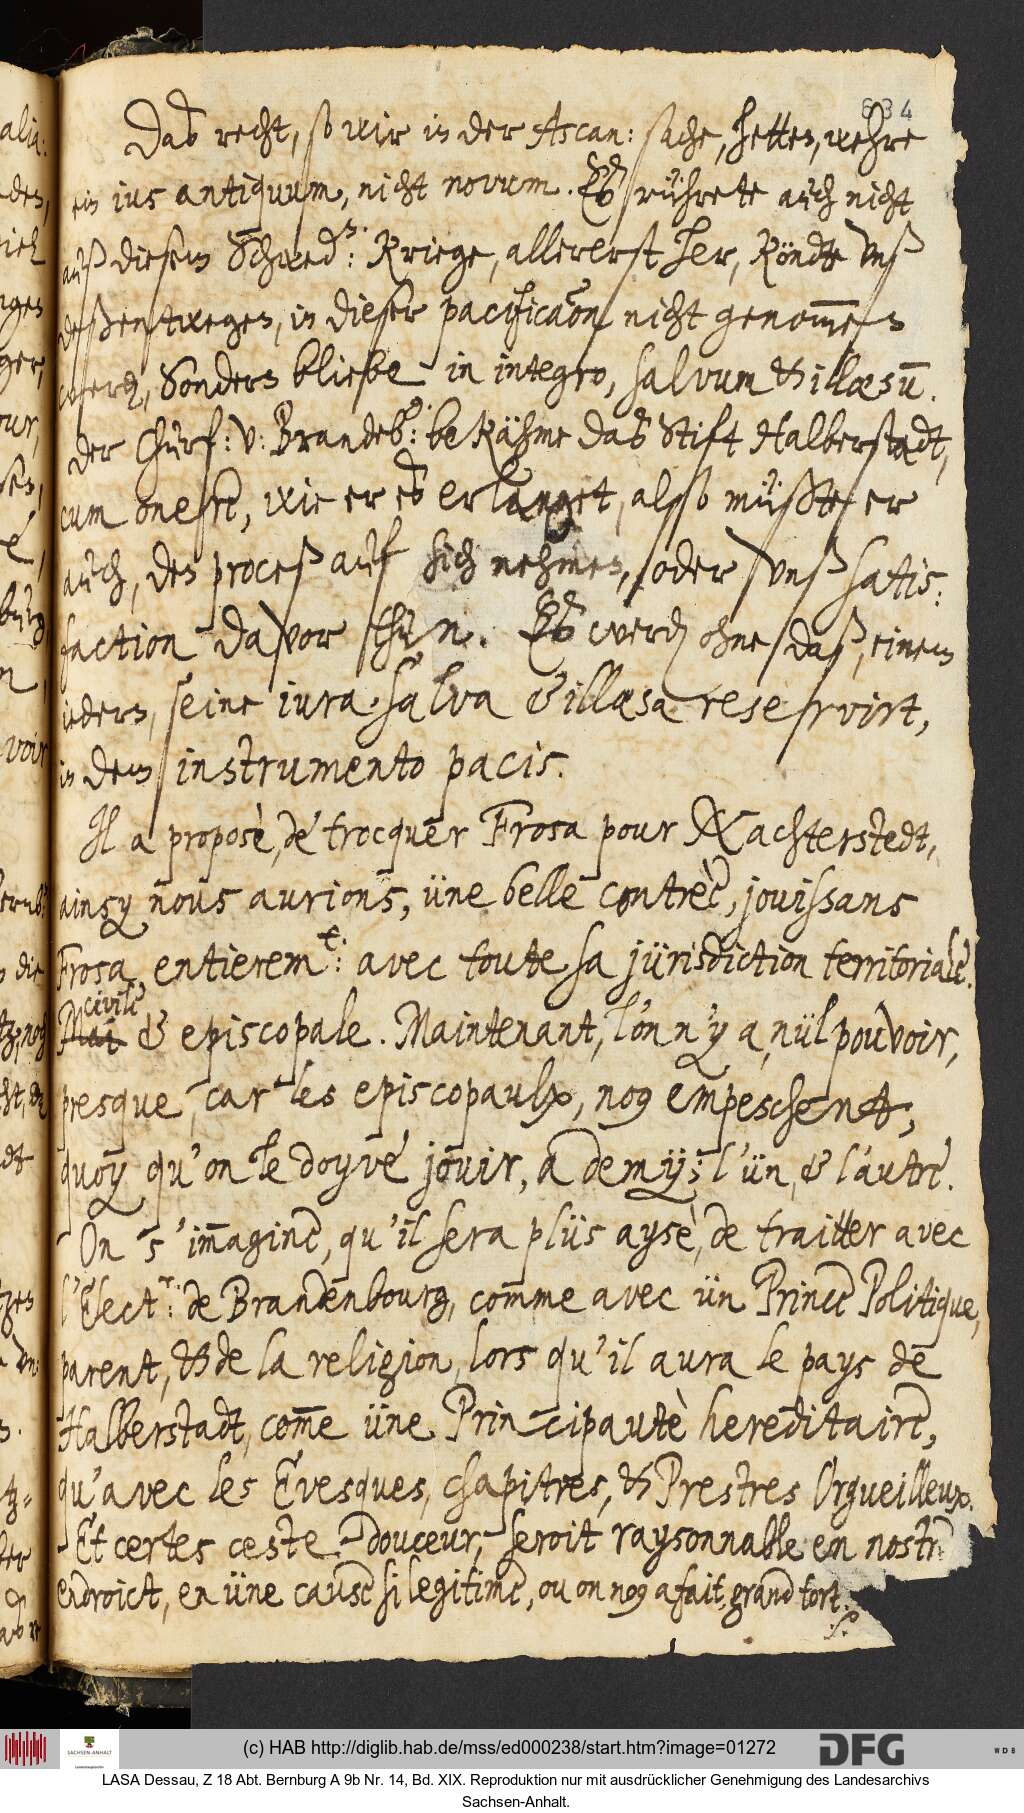 634
Das recht, so wir in der Ascan: sache, hetten, wehre
ein ius antiquum, nicht novum. Es rührete auch nicht
auß diesem Schwed: Kriege, allererst her, Köndte unß
deßentwegen, in dieser pacificaõn nicht genom̅en
werden, Sondern bliebe in integro, salvum & illæsũ.
der Churf: v: Brandeb: bekähme das Stift Halberstadt,
cum onere, wie er es erlanget, also müßte er
auch, den proceß auf sich nehmen, oder unß satis:
faction davor thun. Es werde ohne daß, einem
iedern, seine iura salva & illæsa reservirt,
in dem instrumento pacis.
Il a proposè, de trocquer Frosa pour Nachterstedt,
ainsy nous aurions, üne belle contrèe, jouissans
Frosa entierem.t: avec toute sa jürisdiction territoriale.
civile
& episcopale. Maintenant, l'on n'y a, nül pouvoir,
presque, car les episcopaulx, nos empeschent,
quoy qu'on le doyve jouir, a demÿ; l'ün, & l'autre.
On s'im̅agine, qu'il sera plüs aysè, de traitter avec
l'Elect.r: de Brandenbourg, com̅e avec ün Prince Politique,
parent, & de la religion, lors qu'il aura le pays de
Halberstadt, com̅e üne Principautè hereditaire,
qu'avec les Evesques, chapitres, & Prestres Orgueilleux.
Et certes ceste douceur, seroit raysonnable en nostre
endroict, en üne cause si legitime, ou on nos a fait, grand tort.
(c) HAB http://diglib.hab.de/mss/ed000238/start.htm?image=01272
SACHSEN-ANHALT
DFG
WDB
LASA Dessau, Z 18 Abt. Bernburg A 9b Nr. 14, Bd. XIX. Reproduktion nur mit ausdrücklicher Genehmigung des Landesarchivs
Sachsen-Anhalt.